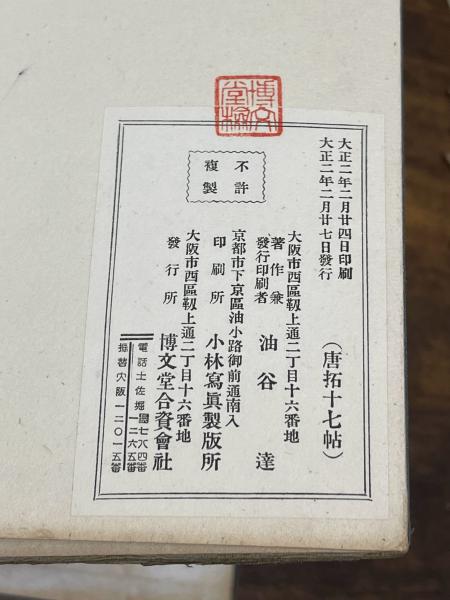 博文堂檢
大正二年二月廿四日印刷
大正二年二月廿七日發行
(唐拓十七帖)
不許
複製
大阪市西區靱上通二丁目十六番地
著作兼
發行印刷者
油谷達
京都市下京區油小路御前通南入
印刷所 小林寫眞製版所
大阪市西區靱上通二丁目十六番地
發行所 博文堂合資會社
電話土佐堀
七八四番
一二六五番
振替大阪一二〇一五番